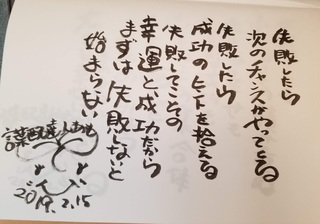 失敗したら
次のチャンスがやってくる
失敗したら
成功のヒントを拾える
失敗してこその
幸運と、成功だから
まずは失敗しないと
始まらない
2019.2.15